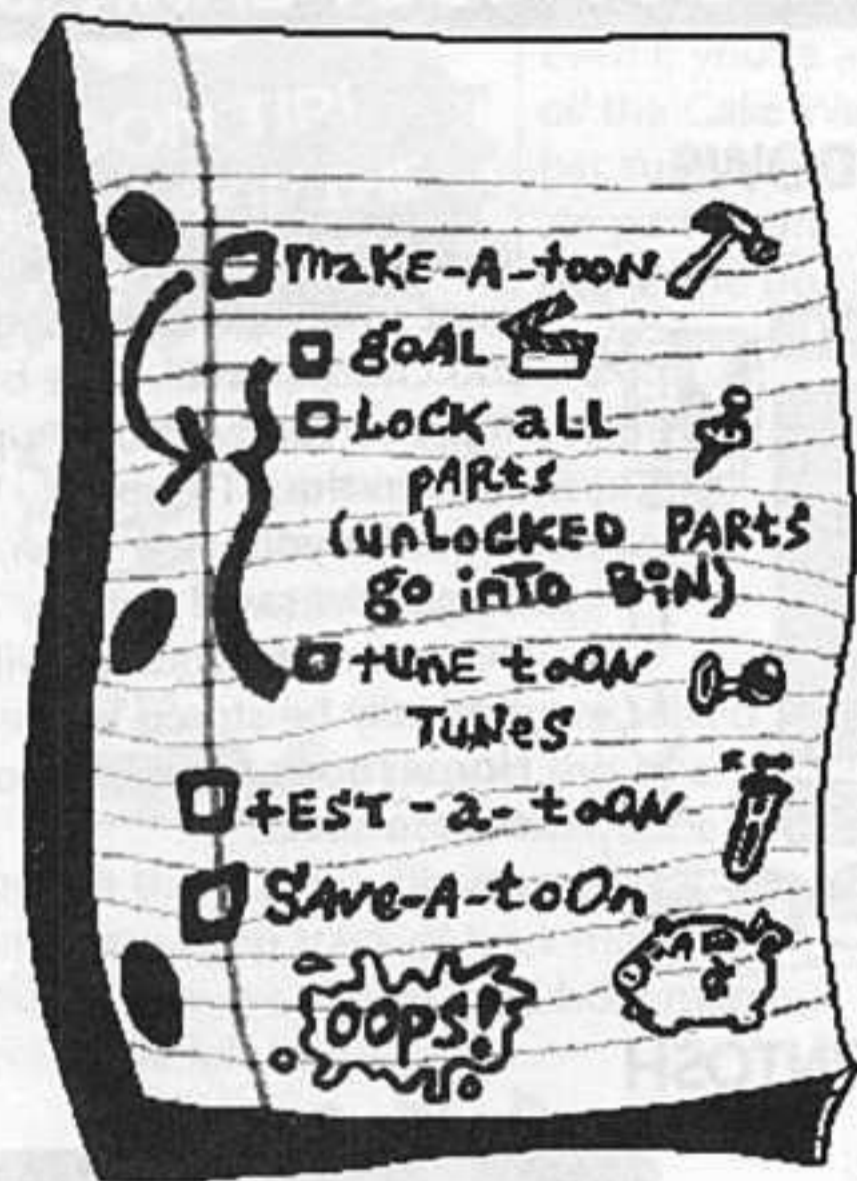 maKE-A-tooN
goAL
LoCK aLL
pARts
(unLoCKED PARts
go inTo BiN)
tUnE tooN
TuNes
tEST-a-tooN
SAve-A-toOn
OOPS!